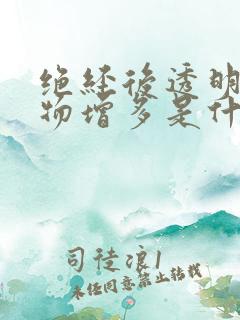 绝经后透明
物增多是什
司徒浪1
未经同意禁止转载